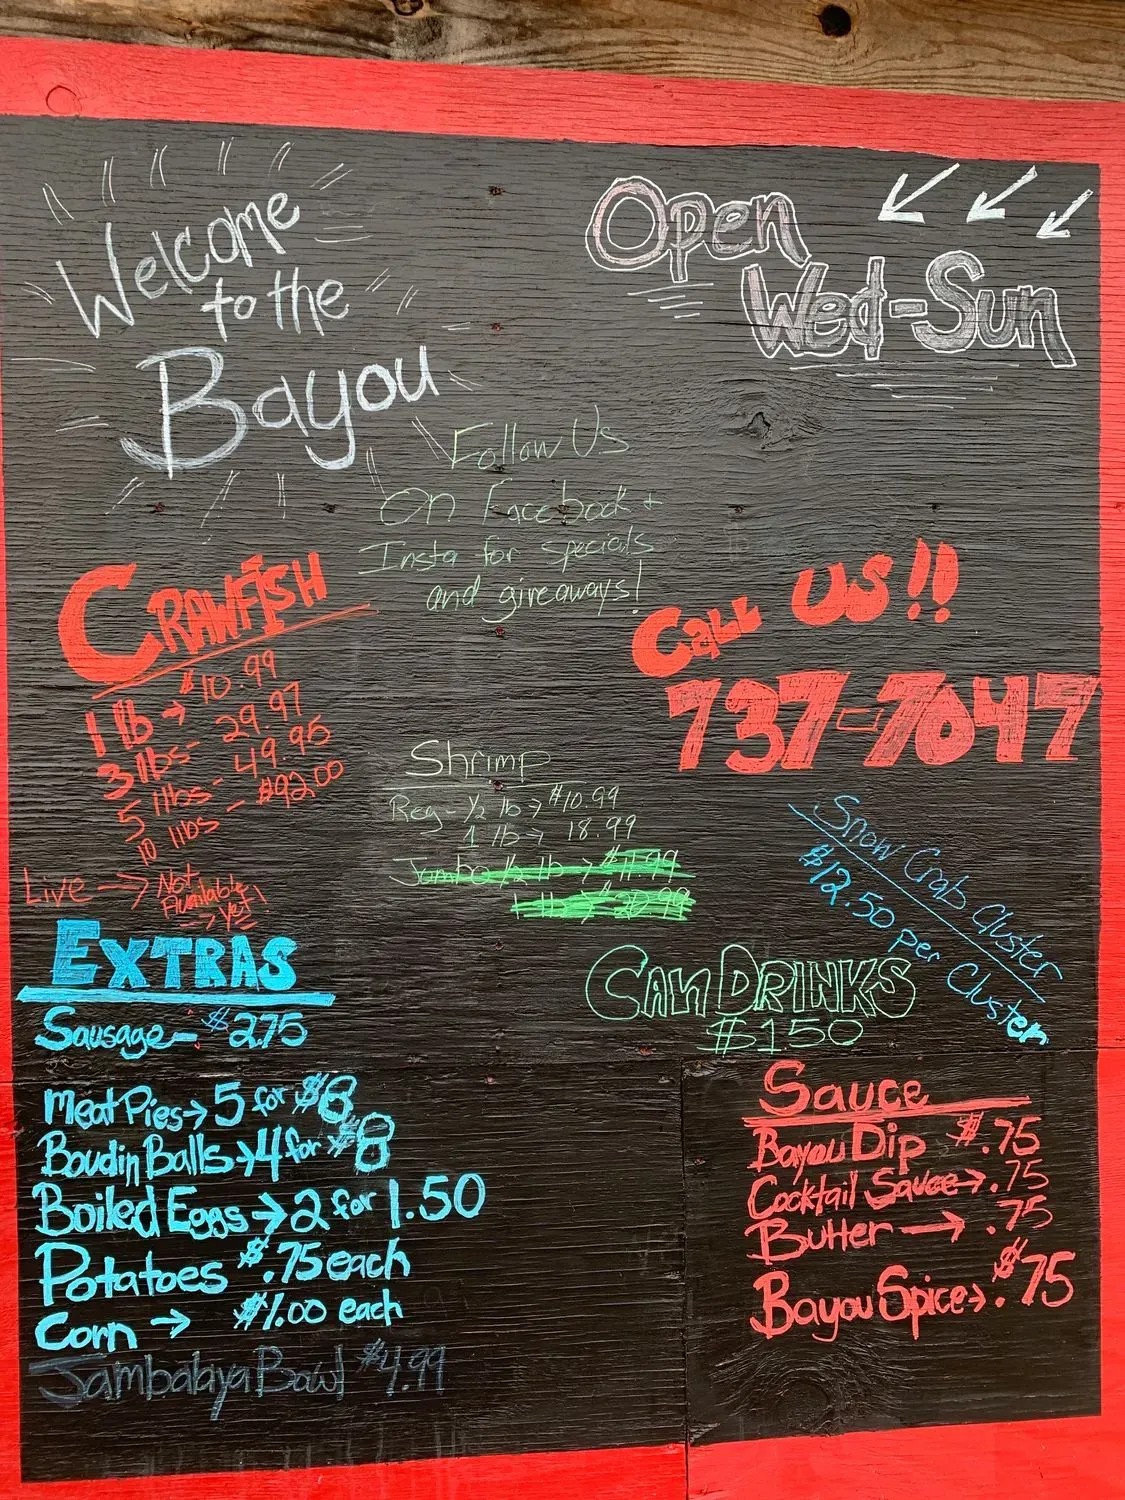 Welcome
to the
Bayou
Open
Wed-Sun
Follow Us
On Facebook +
Insta for specials
and giveaways!
CRAWFISH
1 lb → $10.99
3 lbs - 29.97
5 lbs - 49.95
10 lbs - $92.00
Live → Not
Available
→ Yet!
Call US!!
737-7047
Shrimp
Reg - 1/2 lb → $10.99
1 lb → 18.99
Jumbo 1/2 lb → $11.99
1 lb → $20.99
Snow Crab Cluster
$12.50 per Cluster
EXTRAS
Sausage - $2.75
Meat Pies → 5 for $8
Boudin Balls → 4 for $8
Boiled Eggs → 2 for 1.50
Potatoes $.75 each
Corn → $1.00 each
Jambalaya Bowl $4.99
CAN DRINKS
$1.50
Sauce
Bayou Dip $.75
Cocktail Sauce → .75
Butter → .75
Bayou Spice → $.75